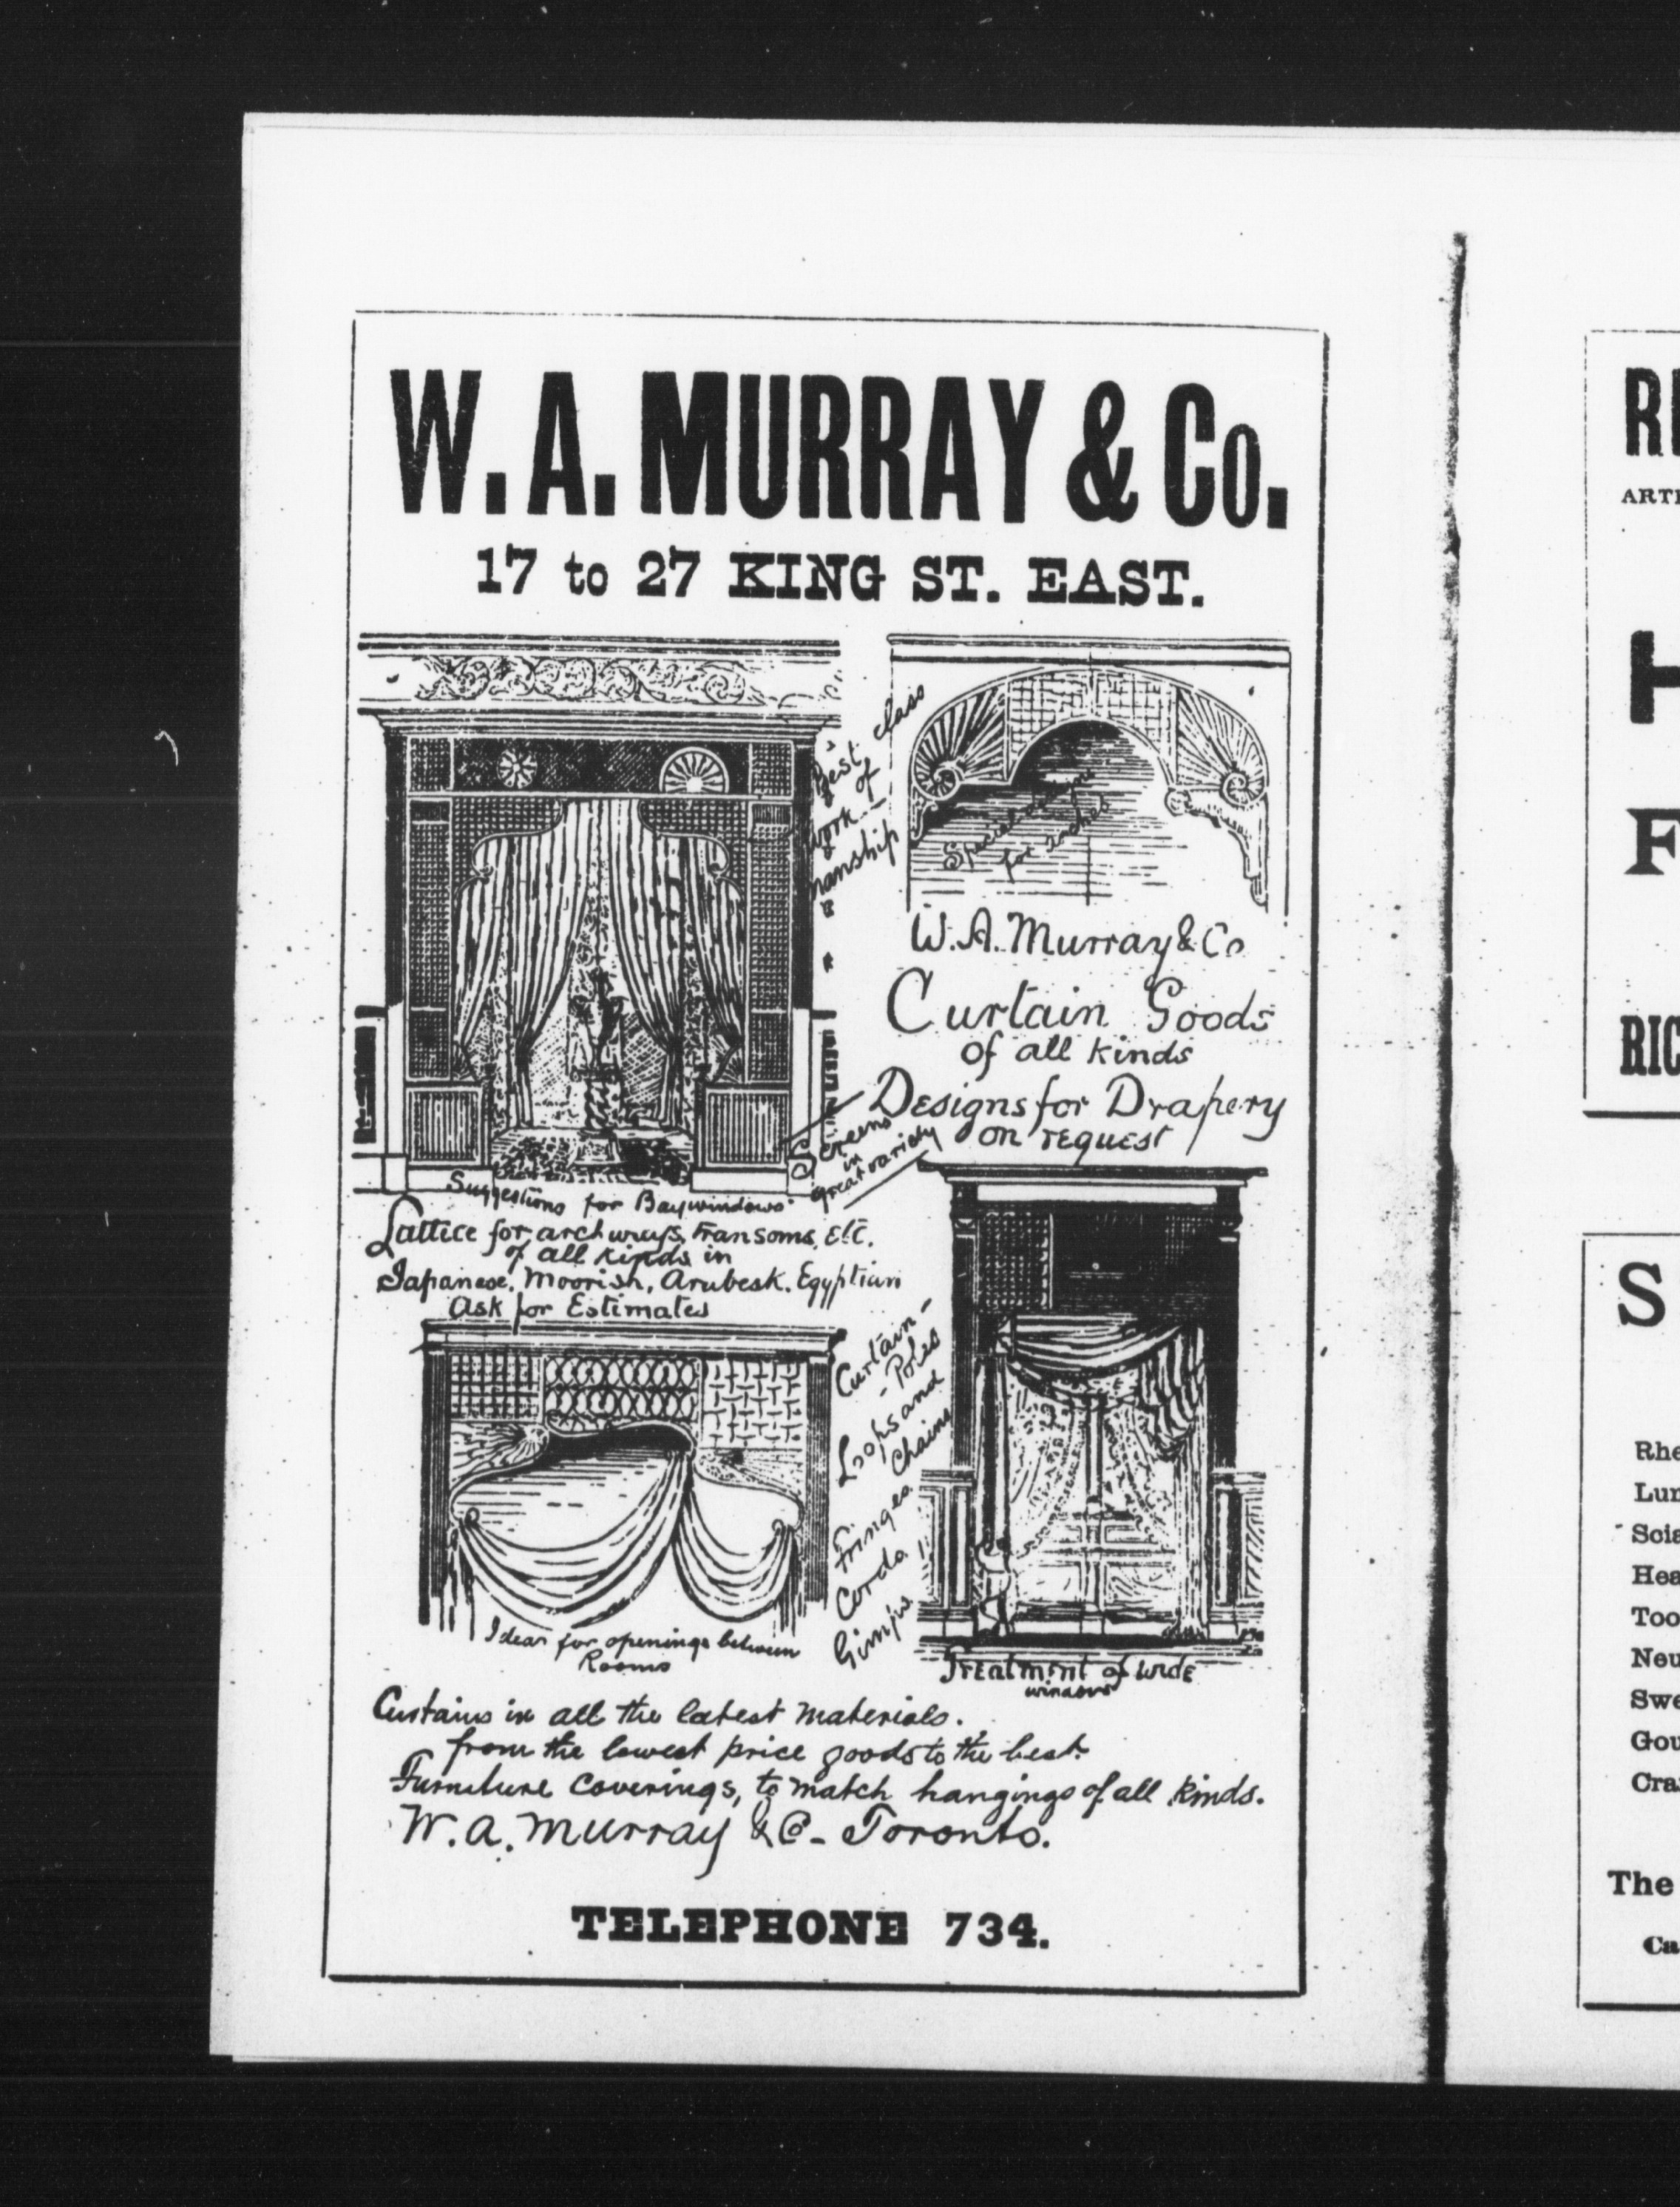 W. A. MURRAY & Co.
17 to 27 KING ST. EAST.
Best class
of
work-
manship
Special designs
for arches
W. A. Murray & Co
Curtain Goods
of all kinds
Designs for Drapery
on request
Screens
in
great variety
Suggestions for Baywindows
Lattice for archways, Transoms, Etc.
of all kinds in
Japanese, Moorish, Arabesk, Egyptian
Ask for Estimates
Curtain-
-Poles
Loops and
Chains
Fringes
Cords
Gimps
Ideas for openings between
Rooms
Treatment of wide
window
Curtains in all the latest materials.
from the lowest price goods to the best.
Furniture Coverings, to match hangings of all kinds.
W. A. Murray & Co- Toronto.
TELEPHONE 734.
RIC
S
The